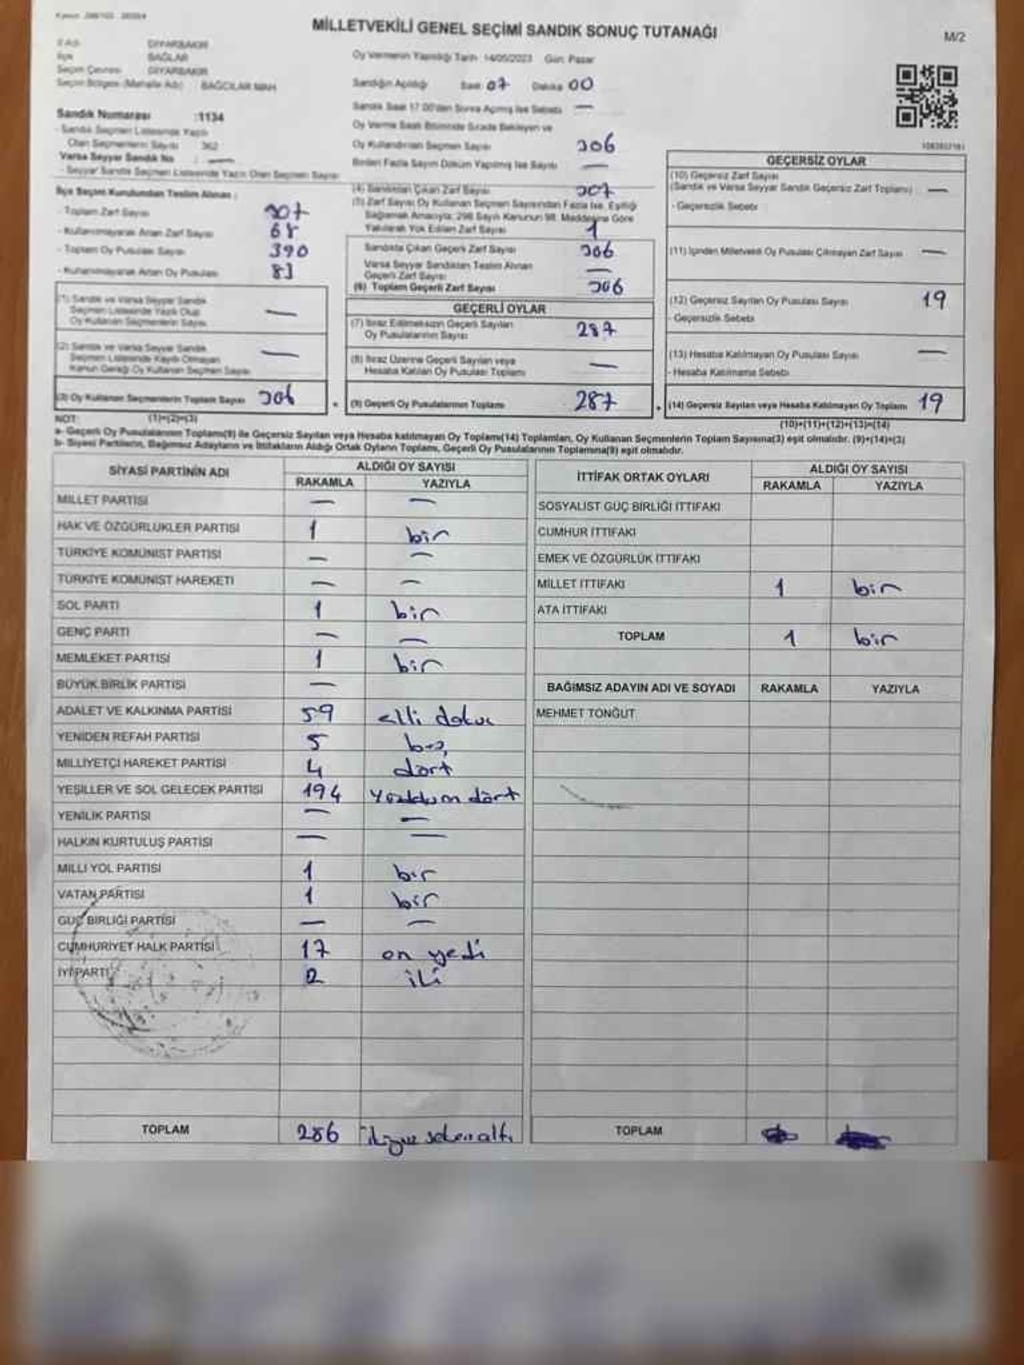 MİLLETVEKİLİ GENEL SEÇİMİ SANDIK SONUÇ TUTANAĞI
M/2
İl Adı DİYARBAKIR
İlçe BAĞLAR
Seçim Çevresi DİYARBAKIR
Seçim Bölgesi (Mahalle Adı) BAĞCILAR MAH
Sandık Numarası :1134
- Sandık Seçmen Listesinde Yazılı
Olan Seçmenlerin Sayısı 362
Varsa Seyyar Sandık No : —
- Seyyar Sandık Seçmen Listesinde Yazılı Olan Seçmen Sayısı
İlçe Seçim Kurulundan Teslim Alınan :
- Toplam Zarf Sayısı 307
- Kullanılmayarak Artan Zarf Sayısı 68
- Toplam Oy Pusulası Sayısı 390
- Kullanılmayarak Artan Oy Pusulası 83
(1) Sandık ve Varsa Seyyar Sandık
Seçmen Listesinde Yazılı Olup
Oy Kullanan Seçmenlerin Sayısı —
(2) Sandık ve Varsa Seyyar Sandık
Seçmen Listesinde Kayıtlı Olmayan
Kanun Gereği Oy Kullanan Seçmen Sayısı —
(3) Oy Kullanan Seçmenlerin Toplam Sayısı 306
Oy Vermenin Yapıldığı Tarih 14/05/2023 Gün Pazar
Sandığın Açıldığı Saat 07 Dakika 00
Sandık Saat 17.00'den Sonra Açılmış İse Sebebi —
Oy Verme Saati Bitiminde Sırada Bekleyen ve
Oy Kullandırılan Seçmen Sayısı 306
Birden Fazla Sayım Döküm Yapılmış İse Sayısı —
(4) Sandıktan Çıkan Zarf Sayısı 307
(5) Zarf Sayısı Oy Kullanan Seçmen Sayısından Fazla İse, Eşitliği
Sağlamak Amacıyla; 298 Sayılı Kanunun 98. Maddesine Göre
Yakılarak Yok Edilen Zarf Sayısı 1
Sandıkta Çıkan Geçerli Zarf Sayısı 306
Varsa Seyyar Sandıktan Teslim Alınan
Geçerli Zarf Sayısı —
(6) Toplam Geçerli Zarf Sayısı 306
GEÇERLİ OYLAR
(7) İtiraz Edilmeksizin Geçerli Sayılan
Oy Pusulalarının Sayısı 287
(8) İtiraz Üzerine Geçerli Sayılan veya
Hesaba Katılan Oy Pusulası Toplamı —
(9) Geçerli Oy Pusulalarının Toplamı 287
GEÇERSİZ OYLAR
(10) Geçersiz Zarf Sayısı
(Sandık ve Varsa Seyyar Sandık Geçersiz Zarf Toplamı) —
- Geçersizlik Sebebi
(11) İçinden Milletvekili Oy Pusulası Çıkmayan Zarf Sayısı —
(12) Geçersiz Sayılan Oy Pusulası Sayısı 19
- Geçersizlik Sebebi
(13) Hesaba Katılmayan Oy Pusulası Sayısı —
- Hesaba Katılmama Sebebi
(14) Geçersiz Sayılan veya Hesaba Katılmayan Oy Toplamı 19
NOT: (1)+(2)=(3)
(10)+(11)+(12)+(13)=(14)
a- Geçerli Oy Pusulaların Toplamı(9) ile Geçersiz Sayılan veya Hesaba katılmayan Oy Toplamı(14) Toplamları, Oy Kullanan Seçmenlerin Toplam Sayısına(3) eşit olmalıdır. (9)+(14)=(3)
b- Siyasi Partilerin, Bağımsız Adayların ve İttifakların Aldığı Ortak Oyların Toplamı, Geçerli Oy Pusulalarının Toplamına(9) eşit olmalıdır.
SİYASİ PARTİNİN ADI ALDIĞI OY SAYISI
RAKAMLA YAZIYLA
MİLLET PARTİSİ — —
HAK VE ÖZGÜRLÜKLER PARTİSİ 1 bir
TÜRKİYE KOMÜNİST PARTİSİ — —
TÜRKİYE KOMÜNİST HAREKETİ — —
SOL PARTİ 1 bir
GENÇ PARTİ — —
MEMLEKET PARTİSİ 1 bir
BÜYÜK BİRLİK PARTİSİ —
ADALET VE KALKINMA PARTİSİ 59 elli dokuz
YENİDEN REFAH PARTİSİ 5 beş
MİLLİYETÇİ HAREKET PARTİSİ 4 dört
YEŞİLLER VE SOL GELECEK PARTİSİ 194 dört
YENİLİK PARTİSİ — —
HALKIN KURTULUŞ PARTİSİ — —
MİLLİ YOL PARTİSİ 1 bir
VATAN PARTİSİ 1 bir
GÜÇ BİRLİĞİ PARTİSİ — —
CUMHURİYET HALK PARTİSİ 17 on yedi
İYİ PARTİ 2 iki
TOPLAM 286
İTTİFAK ORTAK OYLARI ALDIĞI OY SAYISI
RAKAMLA YAZIYLA
SOSYALİST GÜÇ BİRLİĞİ İTTİFAKI
CUMHUR İTTİFAKI
EMEK VE ÖZGÜRLÜK İTTİFAKI
MİLLET İTTİFAKI 1 bir
ATA İTTİFAKI
TOPLAM 1 bir
BAĞIMSIZ ADAYIN ADI VE SOYADI RAKAMLA YAZIYLA
MEHMET TONĞUT
TOPLAM